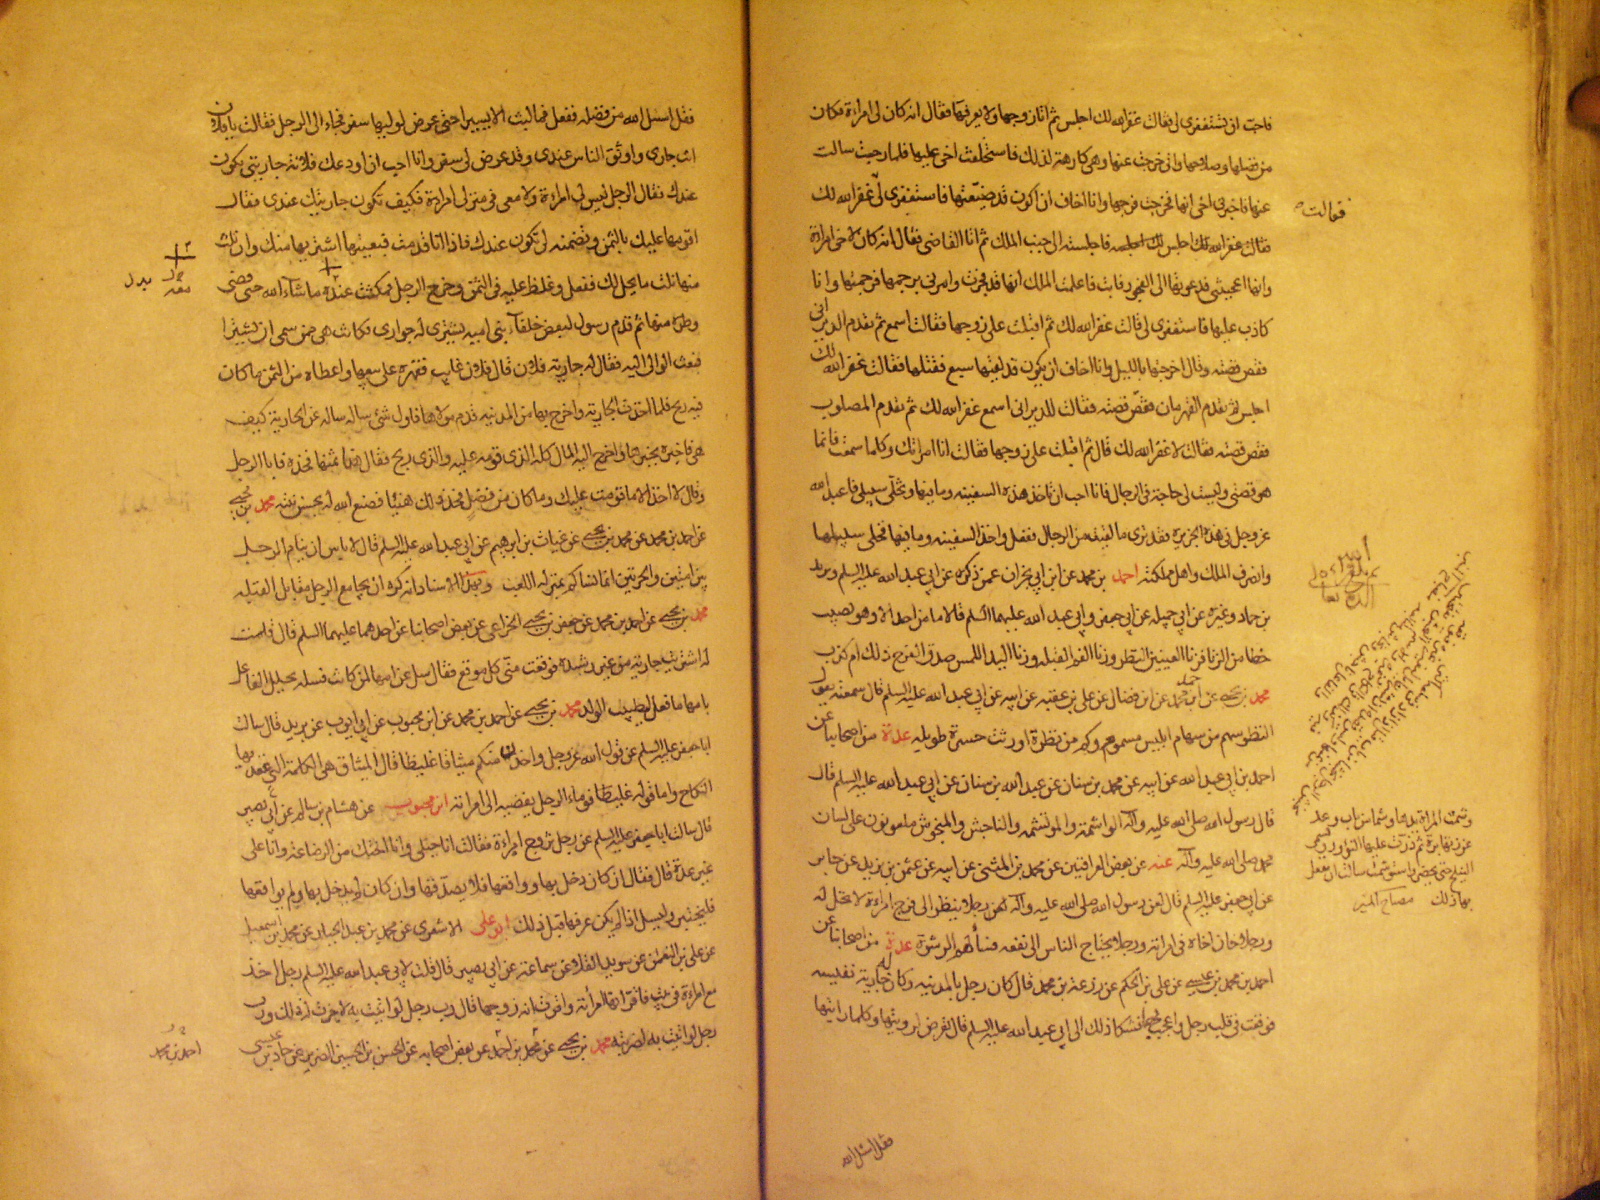 فاحب ان تستغفري لي فقالت غفر الله لك اجلس ثم اتا زوجها ولا يعرفها فقال انه كان لي امراءة وكان
من فضلها وصلاحها واني خرجت عنها وهي كارهة لذلك فاستخلفت اخي عليها فلما رجعت سالت
عنها فاخبرني اخي انها فجرت فرجمها وانا اخاف ان اكون قد ضيعتها فاستغفري لي غفر الله لك
فقالت
فقالت غفر الله لك اجلس فاجلسته الى جنب الملك ثم اتا القاضي فقال انه كان لاخي امراة
وانها اعجبتني فدعوتها الى الفجور فابت فاعلمت الملك انها قد فجرت وامرني برجمها فرجمتها وانا
كاذب عليها فاستغفري لي قالت غفر الله لك ثم اقبلت على زوجها فقالت اسمع ثم تقدم الديراني
فقص قصته وقال اخرجتها بالليل وانا اخاف ان يكون قد لقيها سبع فقتلها فقالت غفر الله لك
اجلس ثم تقدم القهرمان فقص قصته فقالت للديراني اسمع غفر الله لك ثم تقدم المصلوب
فقص قصته فقالت لا غفر الله لك قال ثم اقبلت على زوجها فقالت انا امراتك وكلما سمعت فانما
هو قصتي وليست لي حاجة في الرجال فانا احب ان تاخذ هذه السفينة وما فيها وتخلي سبيلي فاعبد الله
عز وجل في هذه الجزيرة فقد ترى ما لقيت من الرجال ففعل واخذ السفينة وما فيها فخلى سبيلها
وانصرف الملك واهل مملكته احمد بن محمد عن ابن ابي نجران عمن ذكره عن ابي عبد الله عليه السلم ويزيد
بن حماد وغيره عن ابي جميله عن ابي جعفر وابي عبد الله عليهما السلم قالا ما من احد الا وهو يصيب
حظا من الزنا فزنا العينين النظر وزنا الفم القبله وزنا اليد اللمس صدق الفرج ذلك ام كذب
محمد بن يحيى عن احمد بن محمد عن ابن فضال عن علي بن عقبه عن ابيه عن ابي عبد الله عليه السلم قال سمعته يقول
النظر سهم من سهام ابليس مسموم وكم من نظرة اورثت حسرة طويله عدة من اصحابنا عن
احمد بن ابي عبد الله عن ابيه عن محمد بن سنان عن عبد الله بن سنان عن ابي عبد الله عليه السلم قال
قال رسول الله صلى الله عليه وآله الواشمة والموتشمه والناجش والمنجوش ملعونون على لسان
محمد صلى الله عليه وآله عنه عن بعض العراقيين عن محمد بن المثنى عن ابيه عن عثمن بن يزيد عن جابر
عن ابي جعفر عليه السلم قال لعن رسول الله صلى الله عليه وآله رجلا ينظر الى فرج امراءة لا تحل له
ورجلا خان اخاه في امراته ورجلا يحتاج الناس الى نفعه فسألهم الرشوة عدة من اصحابنا عن
احمد بن محمد بن عيسى عن علي بن الحكم عن زرعة بن محمد قال كان رجل بالمدينه وكان له جارية نفيسه
فوقعت في قلب رجل واعجب بها فشكا ذلك الى ابي عبد الله عليه السلم قال تعرض لرويتها وكلما رايتها
وشمت المراة يدها وشما من باب وعد
غرزتها بابرة ثم ذرت عليها النؤر ويسمى
النيلج حتى يخضر واستوشمت سالت ان يفعل
بها ذلك مصباح المنير
فقل اسئل الله
فقل اسئل الله من فضله ففعل فما لبث الا يسيرا حتى عرض لوليها سفر فجاء الى الرجل فقالت يا فلان
انت جاري واوثق الناس عندي وقد عرض لي سفر وانا احب ان اودعك فلانة جاريتي يكون
عندك فقال الرجل ليس لي امراءة ولا معي في منزلي امراءة فكيف تكون جاريتك عندي فقال
اقومها عليك بالثمن وتضمنه لي تكون عندك فاذا انا قدمت فبعنيها اشتريها منك وان نلت
منها نلت ما يحل لك ففعل وغلظ عليه في الثمن وخرج الرجل فمكثت عنده ما شآء الله حتى قضى
وطره منها ثم قدم رسول لبعض خلفآء بني اميه يشتري له جواري فكانت هي فيمن سمى ان يشترا
فبعث الوالي اليه فقال له جارية فلان قال فلان غايب فقهره على بيعها واعطاه من الثمن ما كان
فيه ربح فلما اخذت الجارية واخرج بها من المدينه قدم مولاها فاول شئ ساله ساله عن الجارية كيف
هي فاخبره بخبرها واخرج اليه المال كله الذي قومه عليه والذي ربح فقال هذا ثمنها فخذه فابا الرجل
وقال لا اخذ الا ما قومت عليك وما كان من فضل فخذه لك هنيئا فصنع الله له بحسن نيته محمد بن يحيى
عن احمد بن محمد عن محمد بن يحيى عن غياث بن ابرهيم عن ابي عبد الله عليه السلم قال لا باس ان ينام الرجل
بين امتين والحرتين انما نساكم بمنزله اللعب وبهذا الاسناد انه كره ان يجامع الرجل مقابل القبله
محمد بن يحيى عن احمد بن محمد عن جعفر بن يحيى الخزاعي عن بعض اصحابنا عن احدهما عليهما السلم قال قلت
له اشتريت جارية من غير رشده فوقعت مني كل موقع فقال سل عن امها لمن كانت فسله يحلل الفاعل
بامها ما فعل ليطيب الولد محمد بن يحيى عن احمد بن محمد عن ابن محبوب عن ابي ايوب عن بريد قال سالت
ابا جعفر عليه السلم عن قول الله عز وجل واخذن منكم ميثاقا غليظا قال الميثاق هي الكلمة التي عقد بها
النكاح واما قوله غليظا فهو ماء الرجل يفضيه الى امراته ابن محبوب عن هشام بن سالم عن ابي بصير
قال سالت ابا جعفر عليه السلم عن رجل تزوج امراءة فقالت انا حبلى وانا اختك من الرضاعة وانا على
غير عدة قال فقال ان كان دخل بها وواقعها فلا يصدقها وان كان لم يدخل بها ولم يواقعها
فليختبر وليسل اذا لم يكن عرفها قبل ذلك ابو علي الاشعري عن محمد بن عبد الجبار عن محمد بن اسمعيل
عن علي بن النعمن عن سويد القلا عن سماعة عن ابي بصير قال قلت لابي عبد الله عليه السلم رجل اخذ
مع امراءة في بيت فاقر انها امراته واقرت انه زوجها قال رب رجل لو اتيت به لاجزت له ذلك ورب
رجل لو اتيت به لضربته محمد بن يحيى عن محمد بن احمد عن بعض اصحابه عن الحسن بن الحسين الضرير عن حماد بن عيسى
احمد بن محمد